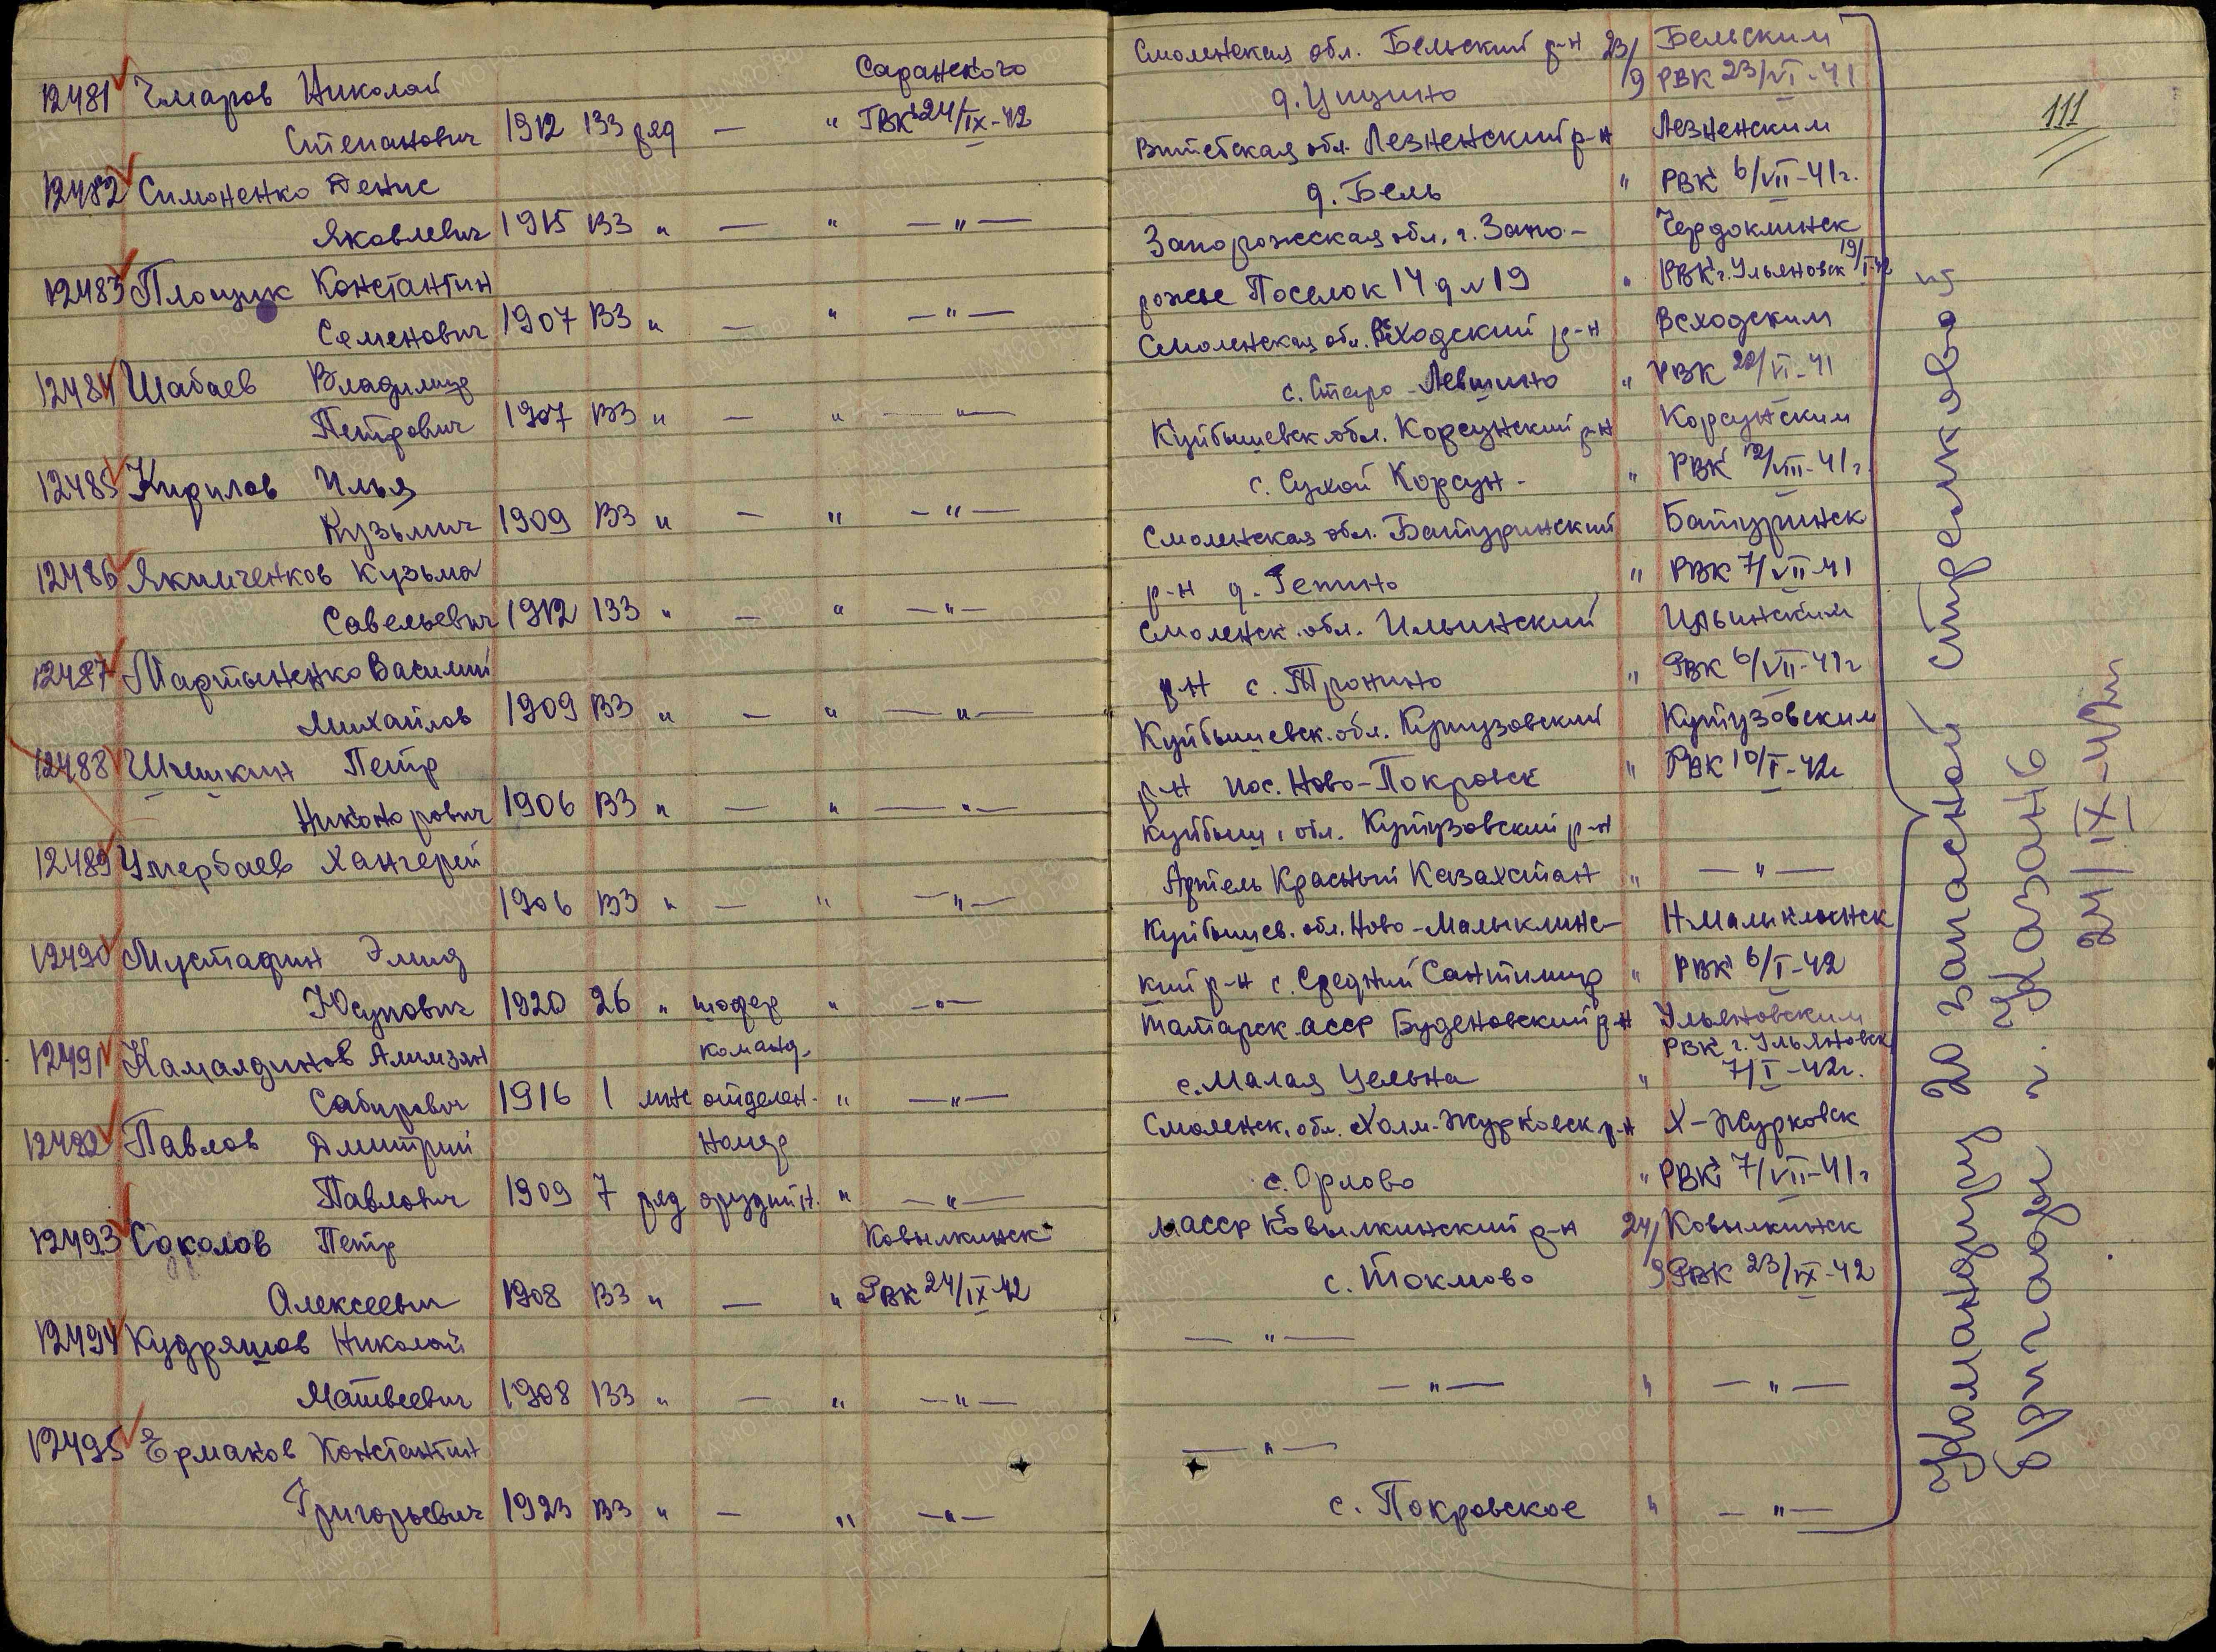 Саранского
12481 Чмаров Николай
Степанович 1912 133 ряд — " ГВК 24/IX-42
12482 Симоненко Денис
Яковлевич 1915 133 " — " — " —
12483 Площик Константин
Семенович 1907 133 " — " — " —
12484 Шабаев Владимир
Петрович 1907 133 " — " — " —
12485 Кирилов Илья
Кузьмич 1909 133 " — " — " —
12486 Якимченков Кузьма
Савельевич 1912 133 " — " — " —
12487 Мартыненко Василий
Михайлов 1909 133 " — " — " —
12488 Шишкин Петр
Никонорович 1906 133 " — " — " —
12489 Умербаев Хангерей
1906 133 " — " — " —
12490 Мустафин Эмид
Юсупович 1920 26 " шофер " — " —
12491 Камалдинов Алимзян команд.
Сабирович 1916 1 отделен. " — " —
12492 Павлов Дмитрий
Павлович 1909 7 ряд орудийн. " — " —
12493 Соколов Петр Ковылкинск
Алексеевич 1908 133 " — " РВК 24/IX-42
12494 Кудряшов Николай
Матвеевич 1908 133 " — " — " —
12495 Ермаков Константин
Григорьевич 1923 133 " — " — " —
Смоленская обл. Бельский р-н 23/9 Бельским
д. Уицино РВК 23/VI-41
Витебская обл. Лезненский р-н Лезненским
д. Бель " РВК 6/VII-41г.
Запорожская обл. г. Запо- Чердоклинск
рожье Поселок 14 д N 19 " РВК г. Ульяновск 19/I-42
Смоленская обл. Всходский р-н Всходским
с. Старо-Левшино " РВК 22/VI-41
Куйбышевск обл. Корсунский р-н Корсунским
с. Сухой Корсун- " РВК 12/VIII-41г.
Смоленская обл. Батуринский Батуринск
р-н д. Гетино " РВК 7/VII-41
Смоленск. обл. Ильинский Ильинским
р-н с. Тронино " РВК 6/VII-41г
Куйбышевск. обл. Кутузовский Кутузовским
р-н пос. Ново-Покровск " РВК 10/I-42г
Куйбыш. обл. Кутузовский р-н
Артель Красный Казахстан " — " —
Куйбышев. обл. Ново-Малыклинс- Н Малыклинск
кий р-н с. Средний Сантимир " РВК 6/I-42
Татарск. асср Буденовский р-н Ульяновским
РВК г. Ульяновск
с. Малая Цельна " 7/I-42г.
Смоленск. обл. Холм-Журковск р-н Х-Журковск
с. Орлово " РВК 7/VII-41г
Масср Ковылкинский р-н 24/9 Ковылкинск
с. Токмово РВК 23/IX-42
— " —
— " — " — " —
— " —
с. Покровское " — " —
111
Командиру 20 запасной стрелковой
бригады г. Казань
24/IX-42г